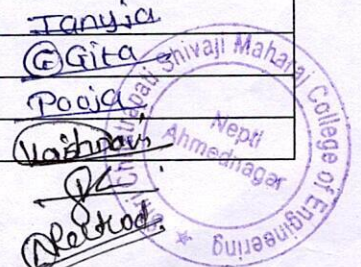 Tanuja
G Gita
Pooja
Vaishnavi
Rathod
Shri Chhatrapati Shivaji Maharaj College of Engineering
Nepti
Ahmednagar